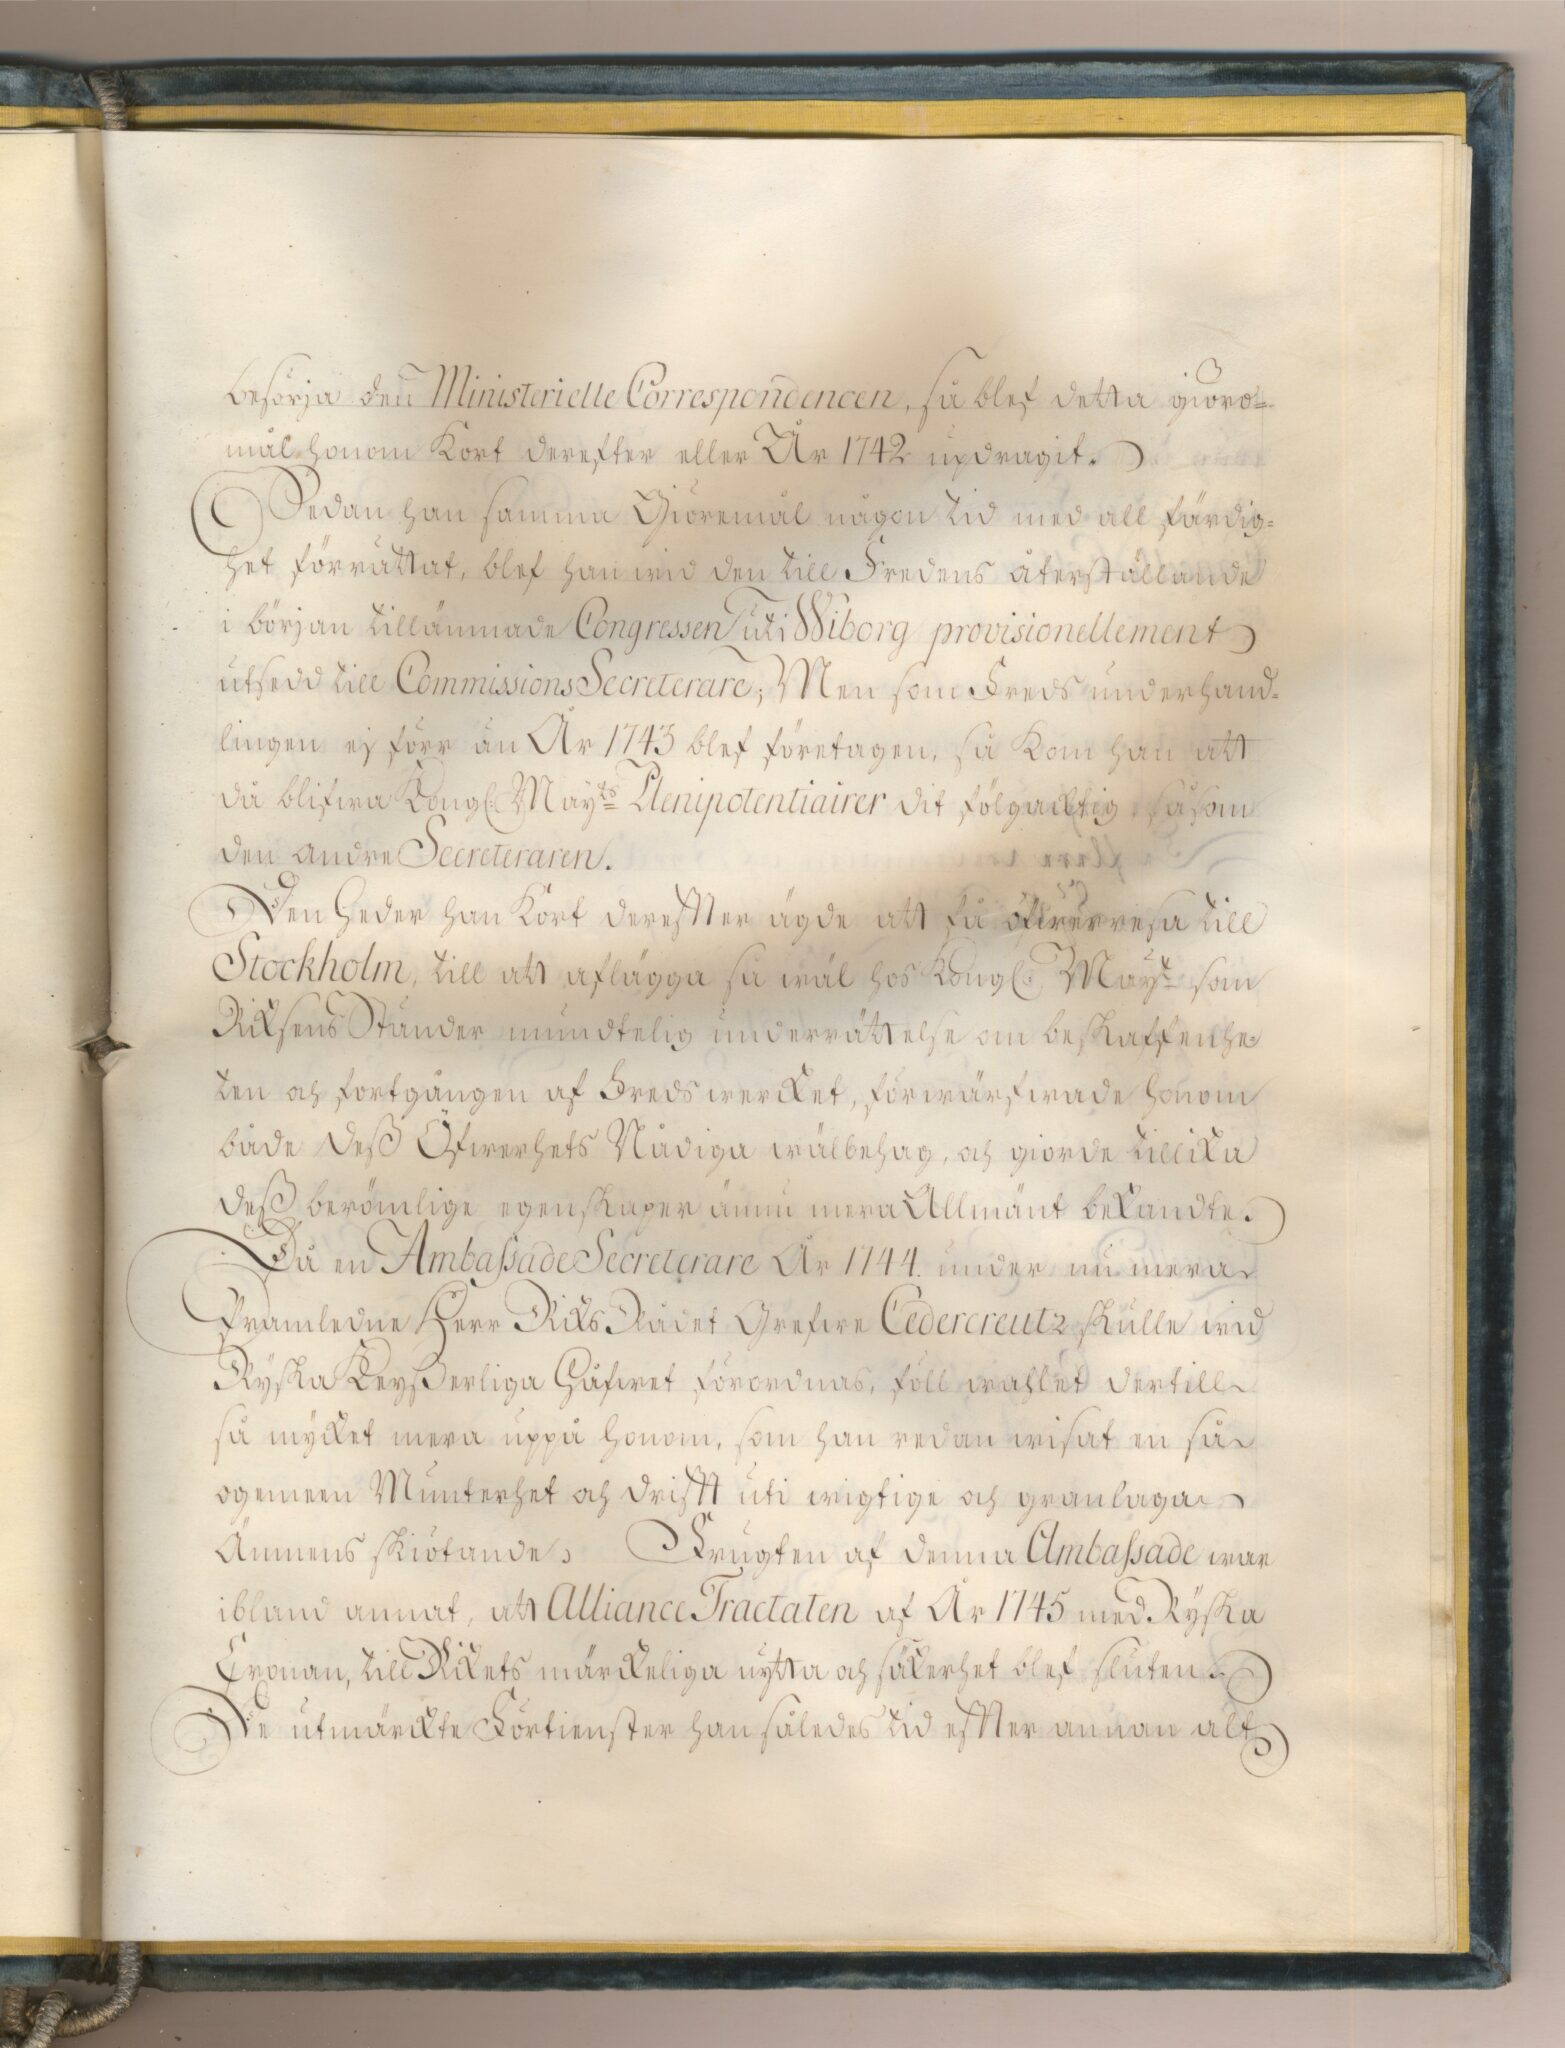 besörja den Ministerielle Correspondencen, så blef detta giöro=
mål honom Kort derefter eller År 1742 updragit.
Sedan han samma Giöremål någon tid med all färdig=
het förrättat, blef han wid den till Fredens återställande
i början tillämnade Congressen uti Wiborg provisionellement
utsedd till Commissions Secreterare; Men som Freds underhand=
lingen ej förr än År 1743 blef företagen, så Kom han att
då blifwa Kongl: Mayts Plenipotentiairer dit fölgacktig såsom
den andre Secreteraren.
Den Heder han Kort derefter ägde att få öfwerresa till
Stockholm, till att aflägga så wäl hos Kongl: Mayt som
Riksens Ständer mundtelig underrättelse om beskaffenhe=
ten och fortgången af Freds wercket, förwärfwade honom
både deß Öfwerhets Nådiga wälbehag, och giorde tillika
deß berömlige egenskaper ännu mera Allmänt bekandte.
Då en Ambassade Secreterare År 1744. under nu mera
Framledne Herr Riks Rådet Grefwe Cedercreutz skulle wid
Ryska Keyßerliga Håfwet förordnas, föll wahlet dertill
så mycket mera uppå honom, som han redan wisat en så
ogemeen Munterhet och drift uti wigtige och granlaga
Ämnens skiötande. Frugten af denna Ambassade war
ibland annat, att Alliance Tractaten af År 1745 med Ryska
Cronan, till Rikets märckeliga nytta och säkerhet blef sluten.
De utmärckte Förtienster han således tid efter annan alt